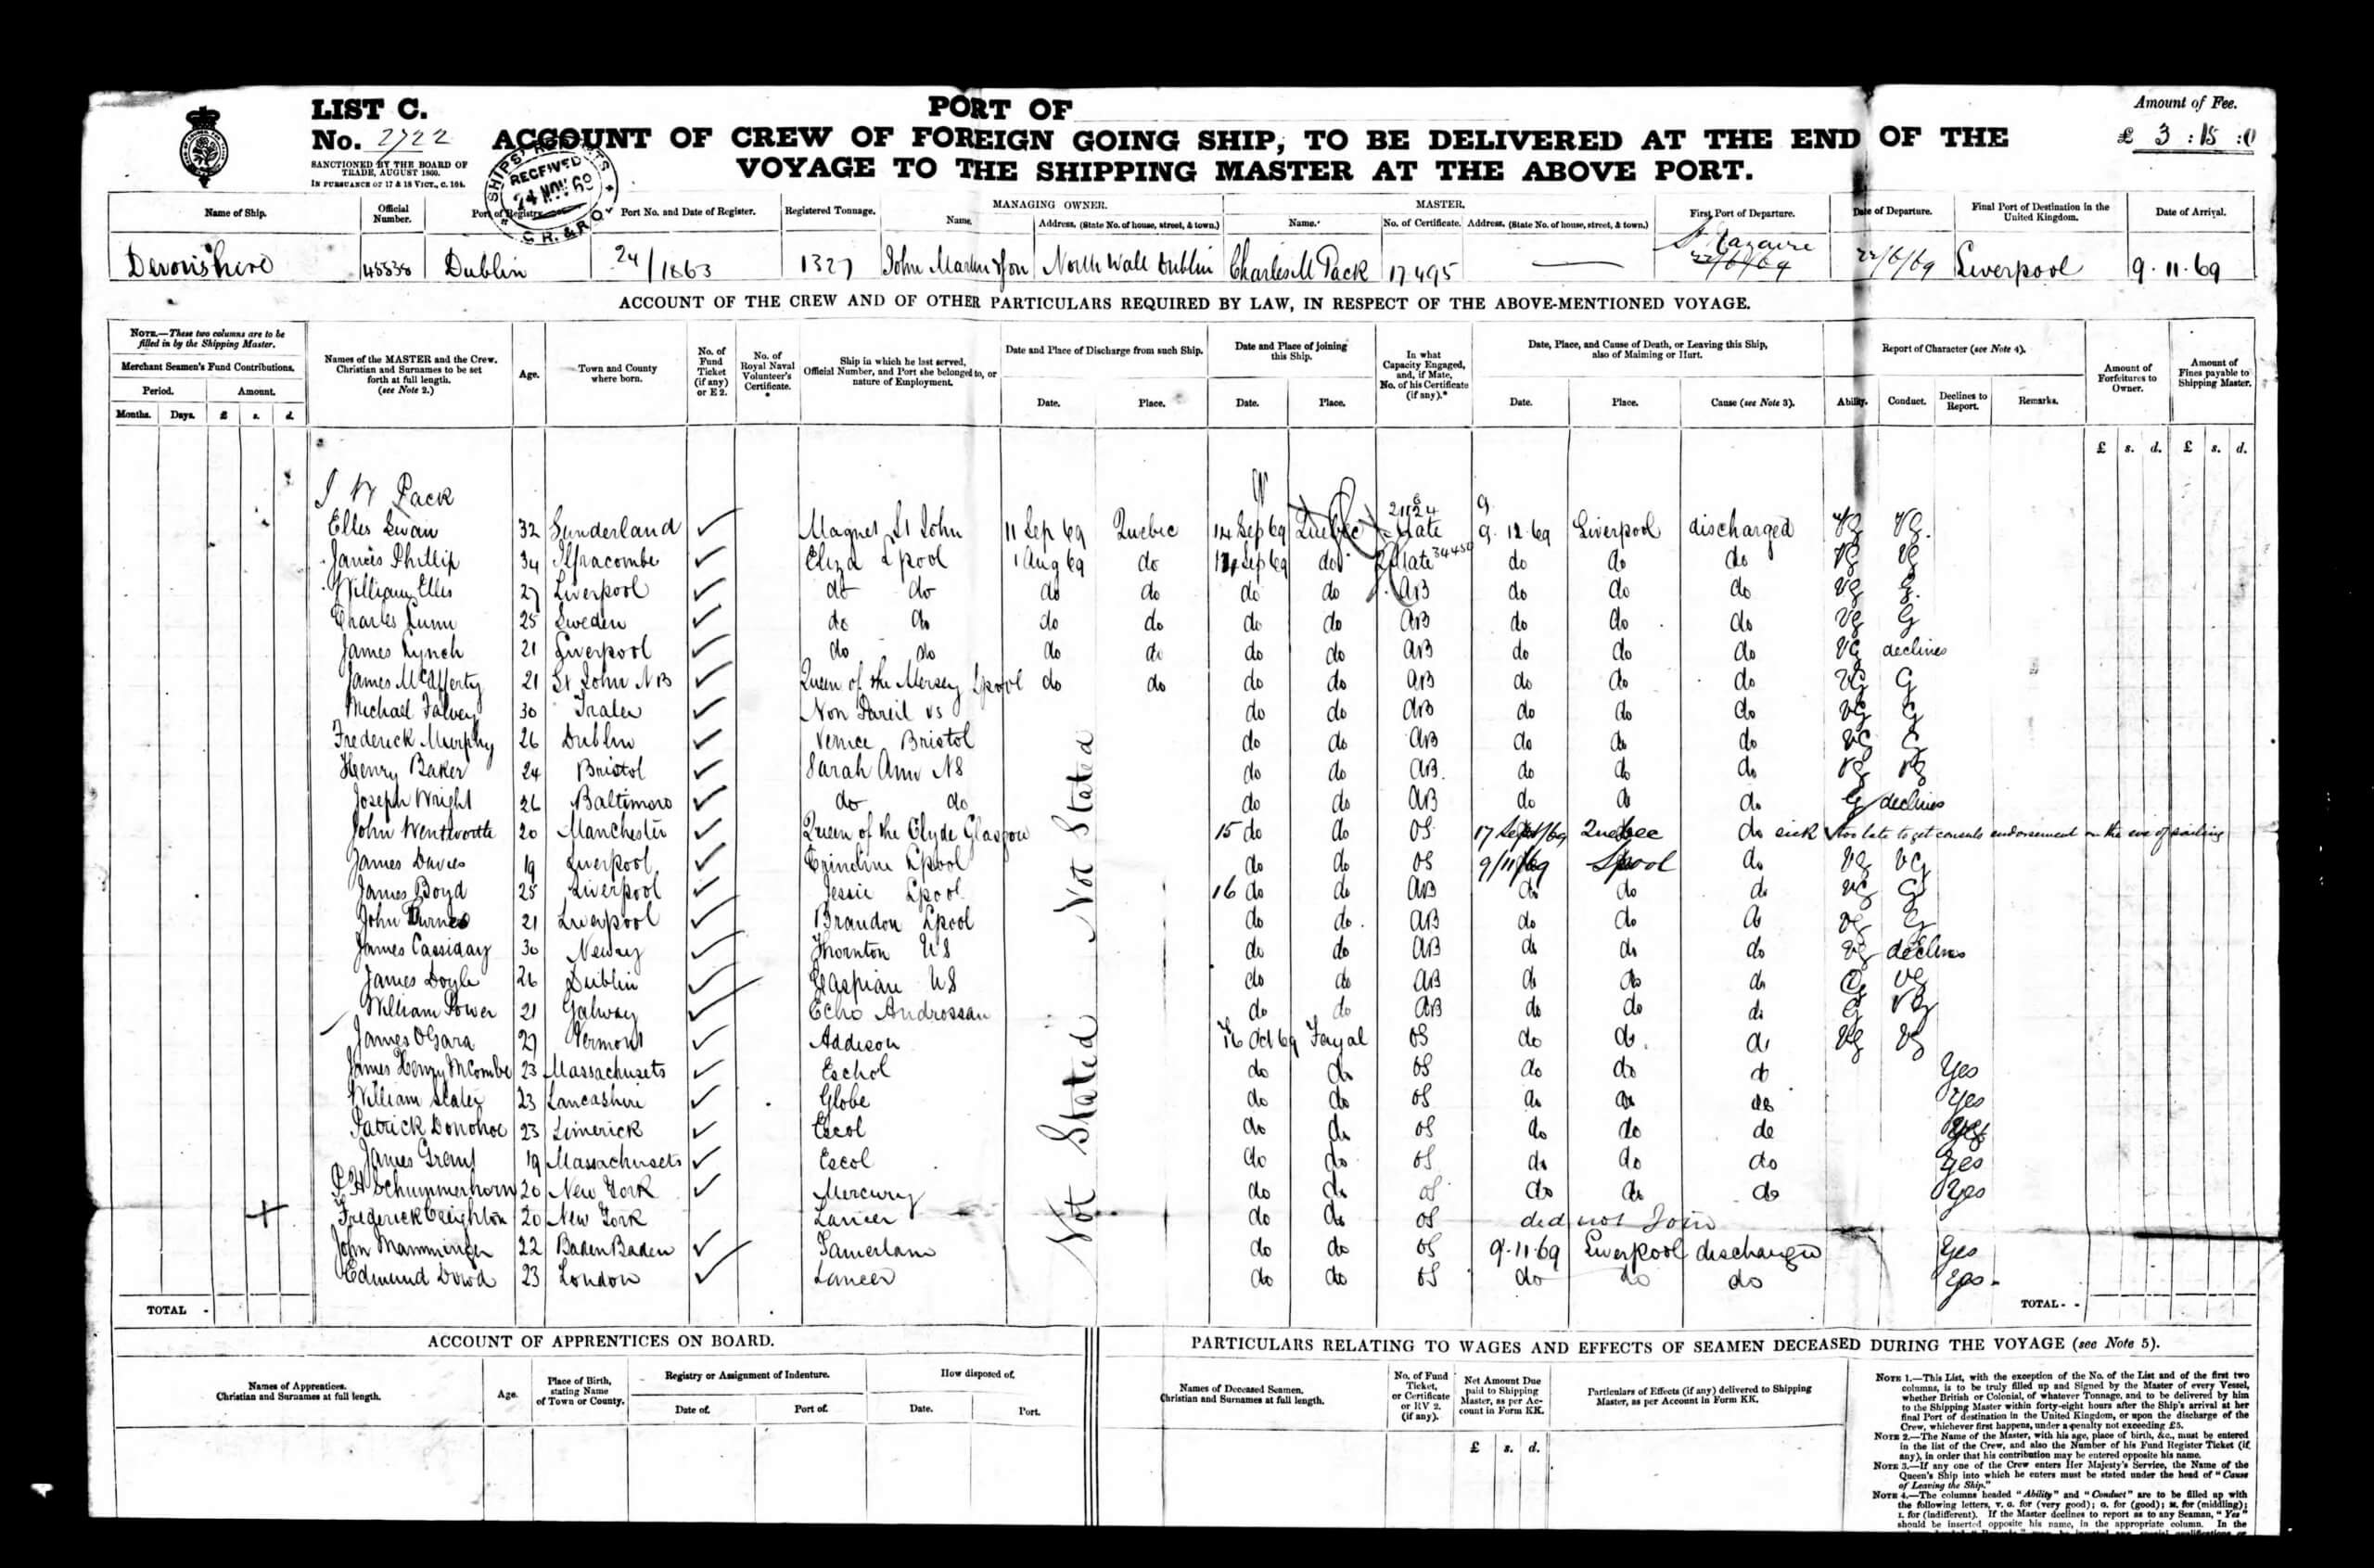 LIST C.
PORT OF
Amount of Fee.
No. 2722
ACCOUNT OF CREW OF FOREIGN GOING SHIP, TO BE DELIVERED AT THE END OF THE
£ 3 : 15 : 0
SANCTIONED BY THE BOARD OF
TRADE, AUGUST 1860.
IN PURSUANCE OF 17 & 18 VICT., C. 104.
VOYAGE TO THE SHIPPING MASTER AT THE ABOVE PORT.
RECEIVED
24 NOV 69
Name of Ship. Official Number. Port of Registry. Port No. and Date of Register. Registered Tonnage. MANAGING OWNER. Name. Address. (State No. of house, street, & town.) MASTER. Name. No. of Certificate. Address. (State No. of house, street, & town.) First Port of Departure. Date of Departure. Final Port of Destination in the United Kingdom. Date of Arrival.
Devonshire 45838 Dublin 24/1863 1327 John Martin & Son North Wall Dublin Charles M Pack 17495 St Nazaire 22/6/69 22/6/69 Liverpool 9.11.69
ACCOUNT OF THE CREW AND OF OTHER PARTICULARS REQUIRED BY LAW, IN RESPECT OF THE ABOVE-MENTIONED VOYAGE.
NOTE.—These two columns are to be filled in by the Shipping Master.
Merchant Seamen's Fund Contributions.
Period. Amount.
Months. Days. £ s. d.
Names of the MASTER and the Crew. Christian and Surnames to be set forth at full length. (see Note 2.)
Age.
Town and County where born.
No. of Fund Ticket (if any) or E 2.
No. of Royal Naval Volunteer's Certificate. *
Ship in which he last served, Official Number, and Port she belonged to, or nature of Employment.
Date and Place of Discharge from such Ship.
Date. Place.
Date and Place of joining this Ship.
Date. Place.
In what Capacity Engaged, and, if Mate, No. of his Certificate (if any).*
Date, Place, and Cause of Death, or Leaving this Ship, also of Maiming or Hurt.
Date. Place. Cause (see Note 3).
Report of Character (see Note 4).
Ability. Conduct. Declines to Report. Remarks.
Amount of Forfeitures to Owner.
Amount of Fines payable to Shipping Master.
£ s. d. £ s. d.
Pack
Elles Swan 32 Sunderland Magnet St John 11 Sep 69 Quebec 14 Sep 69 Quebec Mate 9.12.69 Liverpool discharged VG VG
James Phillip 34 Ilfracombe Eliza Lpool 1 Aug 69 do 14 Sep 69 do Mate 34450 do do do VG VG
William Elles 27 Liverpool do do do do do do AB do do do VG G
Charles Lunn 25 Sweden do do do do do do AB do do do VG G
James Lynch 21 Liverpool do do do do do do AB do do do VG declines
James McAfferty 21 St John NB Queen of the Mersey Lpool do do do do AB do do do VG G
Michael Falvey 30 Tralee Non Pareil US do do AB do do do VG G
Frederick Murphy 26 Dublin Venice Bristol do do AB do do do VG G
Henry Baker 24 Bristol Sarah Ann NS do do AB do do do VG VG
Joseph Wright 26 Baltimore do do do do AB do do do G declines
John Wentworth 20 Manchester Queen of the Clyde Glasgow 15 do do OS 17 Sept/69 Quebec do sick too late to get consuls endorsement on the eve of sailing
James Davies 19 Liverpool Lpool do do OS 9/11/69 Lpool do VG VG
James Boyd 25 Liverpool Jessie Lpool 16 do do AB do do do VG G
John Burnes 21 Liverpool Brandon Lpool do do AB do do do VG G
James Cassiday 30 Newry Thornton US do do AB do do do VG declines
James Doyle 26 Dublin US do do AB do do do G VG
William Power 21 Galway Echo Androssan do do AB do do do G VG
James OGara 27 Vermont Addison 16 Oct 69 Fayal OS do do do VG VG
James Henry McCombe 23 Massachusets Eschol do do OS do do do Yes
William Slater 23 Lancashire Globe do do OS do do do Yes
Patrick Donohoe 23 Limerick Escol do do OS do do do Yes
James Grant 19 Massachusets Escol do do OS do do do Yes
P H Schummerhorn 20 New York Mercury do do OS do do do Yes
Frederick Creighton 20 New York Lancer do do OS did not Join
John Mamminger 22 Baden Baden Tamerlane do do OS 9.11.69 Liverpool discharged Yes
Edmund Dowd 23 London Lancer do do OS do do do Yes
Not Stated Not Stated
TOTAL - TOTAL - -
ACCOUNT OF APPRENTICES ON BOARD.
Names of Apprentices. Christian and Surnames at full length.
Age.
Place of Birth, stating Name of Town or County.
Registry or Assignment of Indenture.
Date of. Port of.
How disposed of.
Date. Port.
PARTICULARS RELATING TO WAGES AND EFFECTS OF SEAMEN DECEASED DURING THE VOYAGE (see Note 5).
Names of Deceased Seamen. Christian and Surnames at full length.
No. of Fund Ticket, or Certificate or RV 2. (if any).
Net Amount Due paid to Shipping Master, as per Account in Form KK.
£ s. d.
Particulars of Effects (if any) delivered to Shipping Master, as per Account in Form KK.
NOTE 1.—This List, with the exception of the No. of the List and of the first two
columns, is to be truly filled up and Signed by the Master of every Vessel,
whether British or Colonial, of whatever Tonnage, and to be delivered by him
to the Shipping Master within forty-eight hours after the Ship's arrival at her
final Port of destination in the United Kingdom, or upon the discharge of the
Crew, whichever first happens, under a penalty not exceeding £5.
NOTE 2.—The Name of the Master, with his age, place of birth, &c., must be entered
in the list of the Crew, and also the Number of his Fund Register Ticket (if
any), in order that his contribution may be entered opposite his name.
NOTE 3.—If any one of the Crew enters Her Majesty's Service, the Name of the
Queen's Ship into which he enters must be stated under the head of "Cause
of Leaving the Ship."
NOTE 4.—The columns headed "Ability" and "Conduct" are to be filled up with
the following letters, V. G. for (very good); G. for (good); M. for (middling);
I. for (indifferent). If the Master declines to report as to any Seaman, "Yes"
should be inserted opposite his name, in the appropriate column. In the